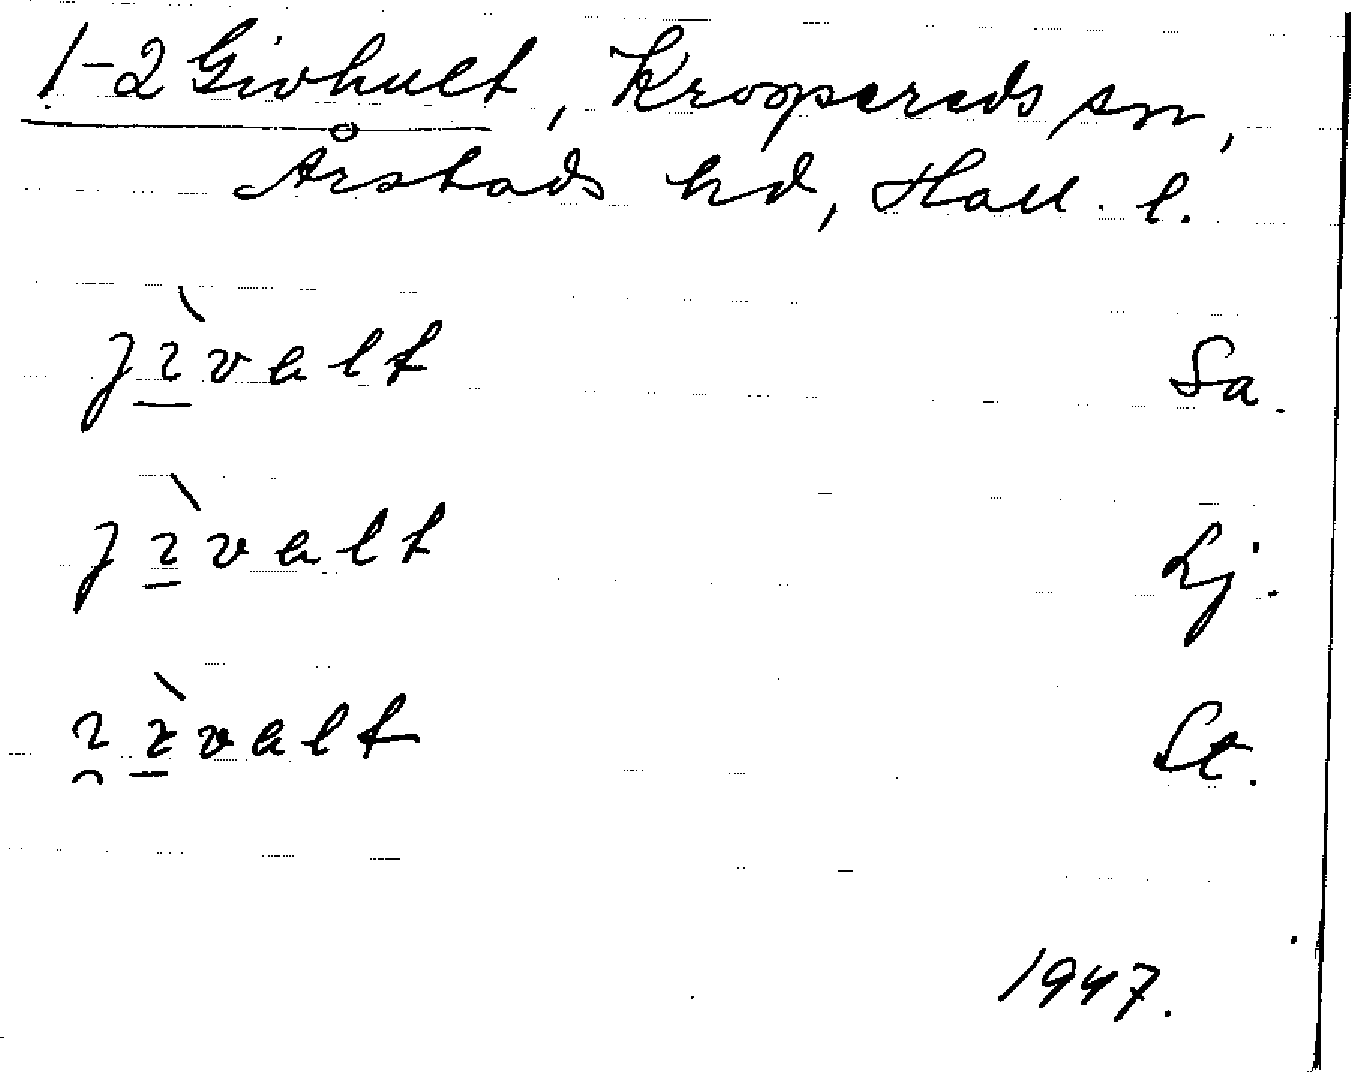 1-2 Givhult, Krogsereds sn,
Årstads hd, Hall. l.
jɩ̀valt Sa.
jɩ̀valt Lj.
ɩ̯ɩ̀valt St.
1947.